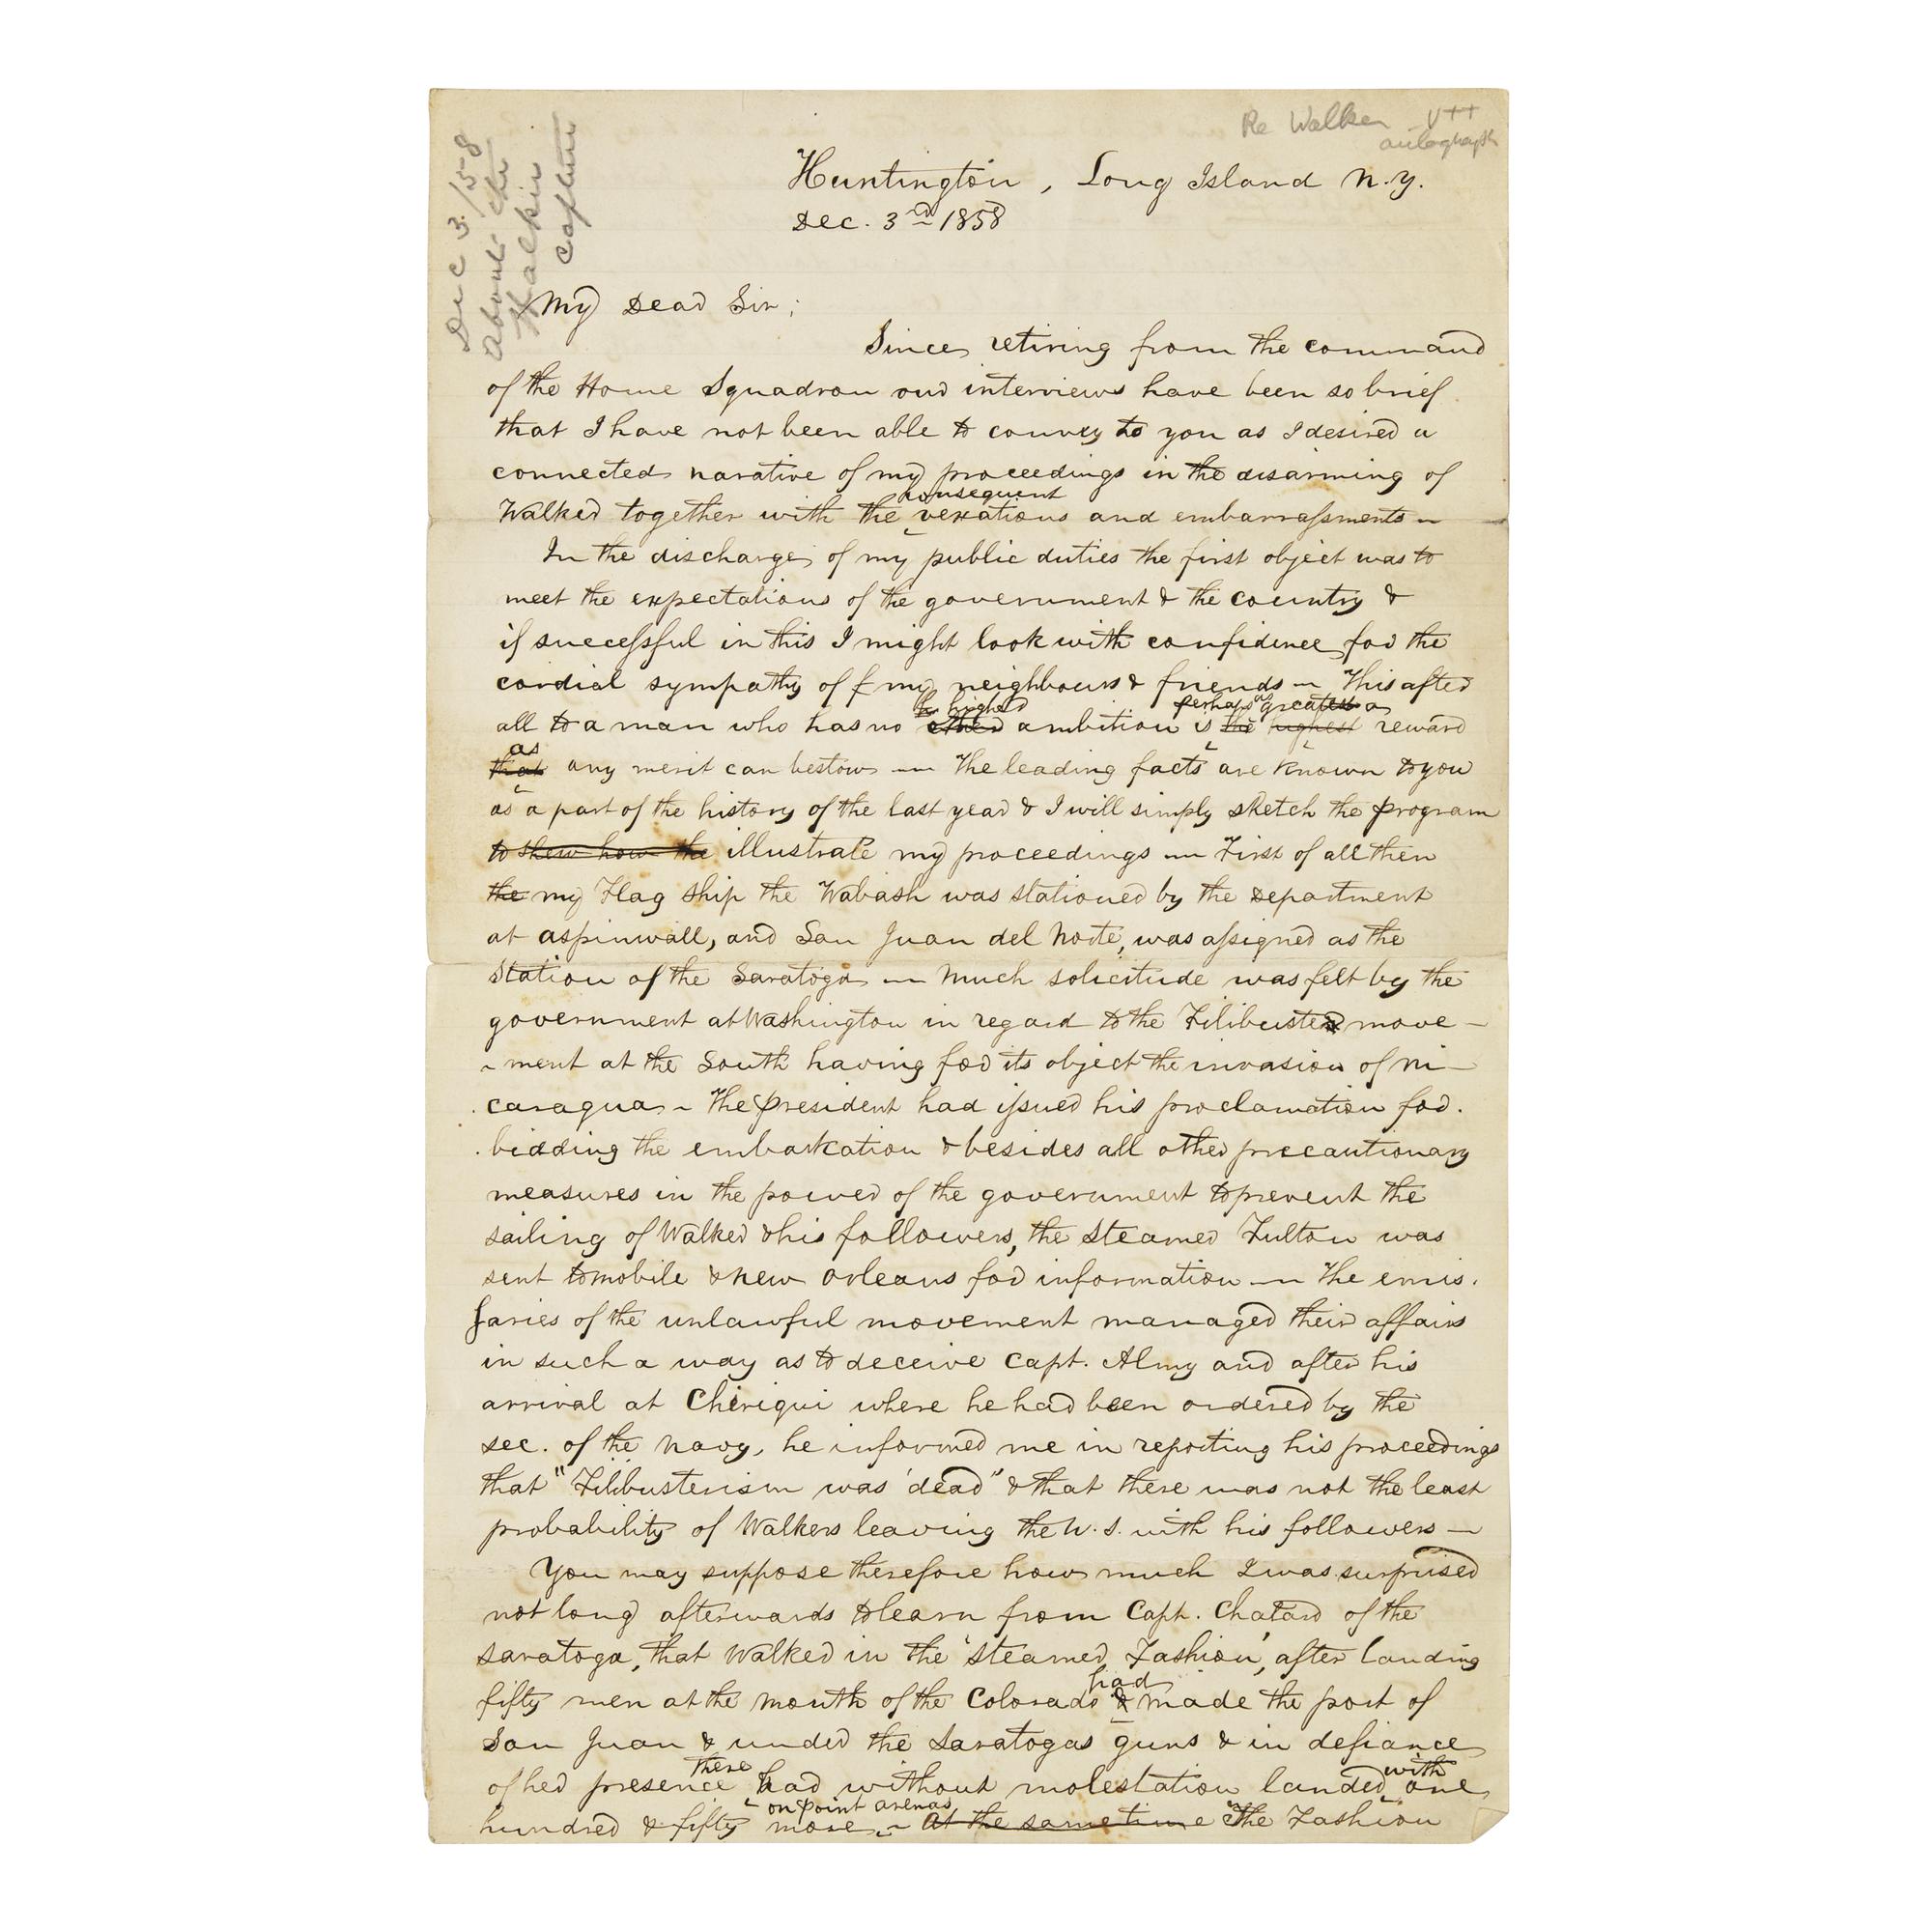 Re Walker V++
autograph
Dec 3. /58
About the
Walker
Capture
Huntington, Long Island N.Y.
Dec. 3rd 1858
My Dear Sir;
Since retiring from the command
of the Home Squadron our interviews have been so brief
that I have not been able to convey to you as I desired a
connected narative of my proceedings in the disarming of
consequent
Walker together with the vexations and embarrassments —
In the discharge of my public duties the first object was to
meet the expectations of the government & the country &
if successful in this I might look with confidence for the
cordial sympathy of f my neighbours & friends — This after
higher perhaps as greatest a
all to a man who has no other ambition is the highest reward
as
that any merit can bestow — The leading facts are known to you
as a part of the history of the last year & I will simply sketch the program
to shew how the illustrate my proceedings — First of all then
the my Flag ship the Wabash was stationed by the Department
at Aspinwall, and San Juan del Norte, was assigned as the
station of the Saratoga — Much solicitude was felt by the
government at Washington in regard to the Filibuster move-
-ment at the South having for its object the invasion of Ni-
caragua - The President had issued his proclamation for.
.bidding the embarkation & besides all other precautionary
measures in the power of the government to prevent the
sailing of Walker & his followers, the steamer Fulton was
sent to Mobile & New Orleans for information — The emis.
saries of the unlawful movement managed their affairs
in such a way as to deceive Capt. Almy and after his
arrival at Chiriqui where he had been ordered by the
Sec. of the Navy, he informed me in reporting his proceedings
that "Filibusterism was 'dead" & that there was not the least
probability of Walkers leaving the U.S. with his followers —
You may suppose therefore how much I was surprised
not long afterwards to learn from Capt. Chatard of the
Saratoga, that Walker in the 'steamer Fashion', after landing
had
fifty men at the mouth of the Colorado & made the port of
San Juan & under the Saratogas guns & in defiance
there with
of her presence had without molestation landed one
on Point Arenas
hundred & fifty more - At the same time The Fashion